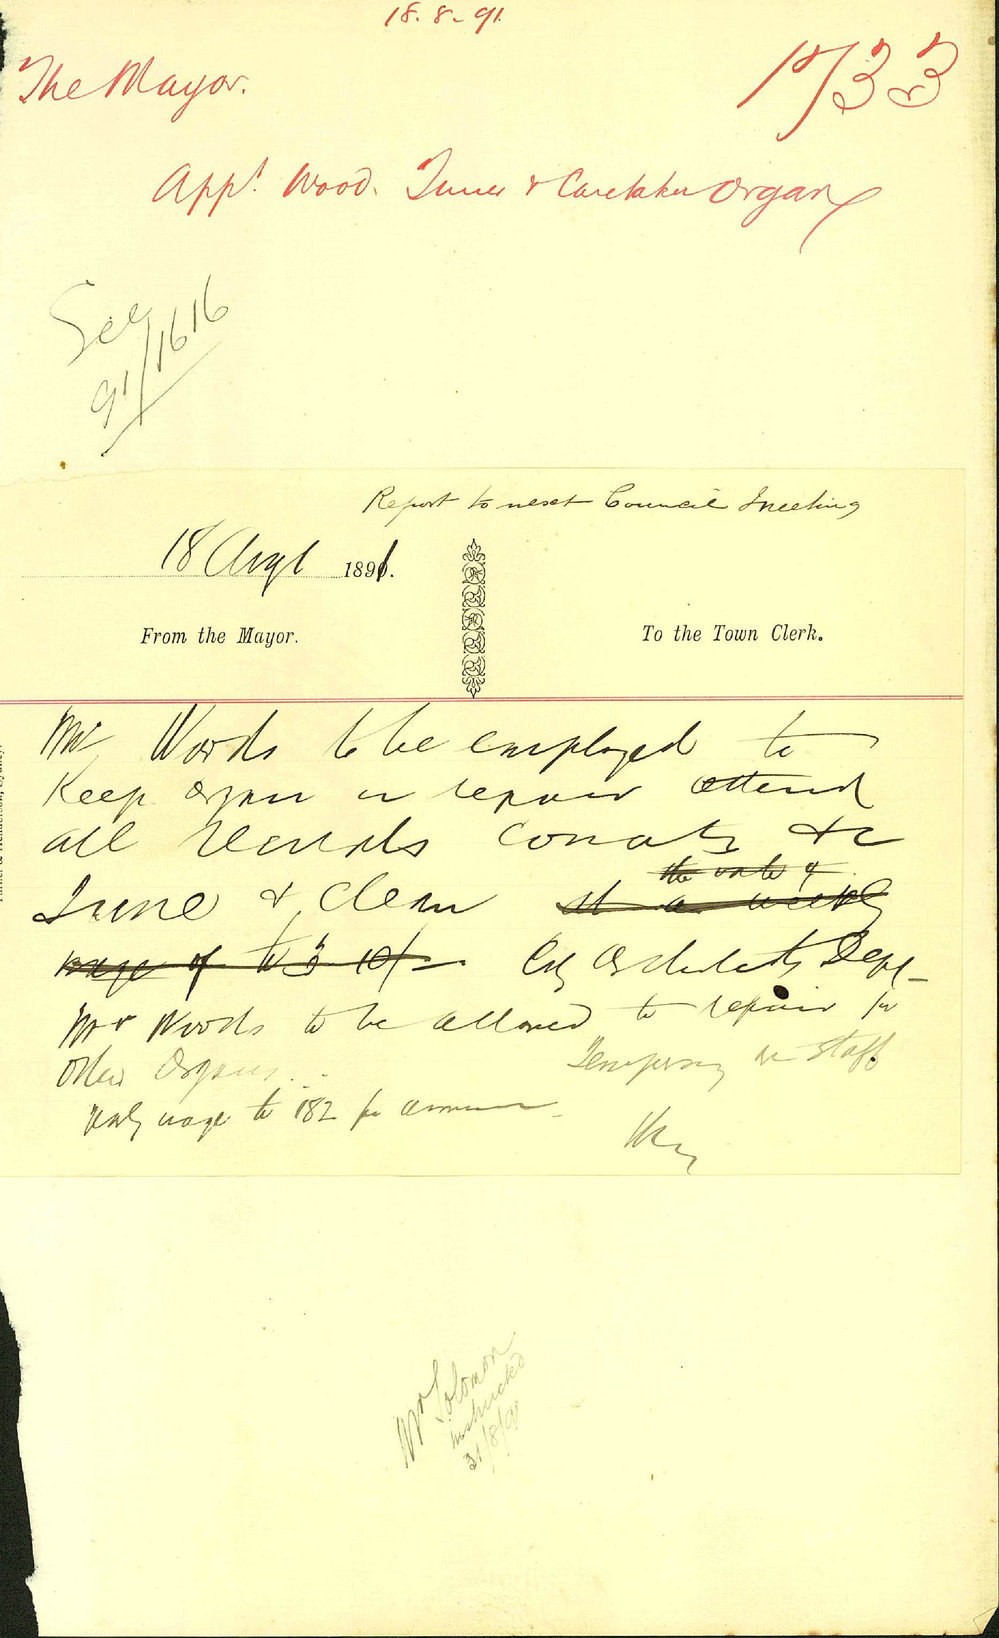 18.8.91
The Mayor.
1733
Appt. Wood. Tuner & Caretaker Organ
See
91/1616
Report to next Council Meeting
18 Augt 1891.
From the Mayor.
To the Town Clerk.
Mr Woods to be employed to
Keep organ in repair attend
all Recitals Concerts &c
the rate of
Tune & Clean at a weekly
wage of to 3 10/- City Architects Dept
Mr Woods to be allowed to repair for
Other Organs. Temporary on staff
Yearly wage to 182 per annum
Mr Solomon
instructed
21/8/91